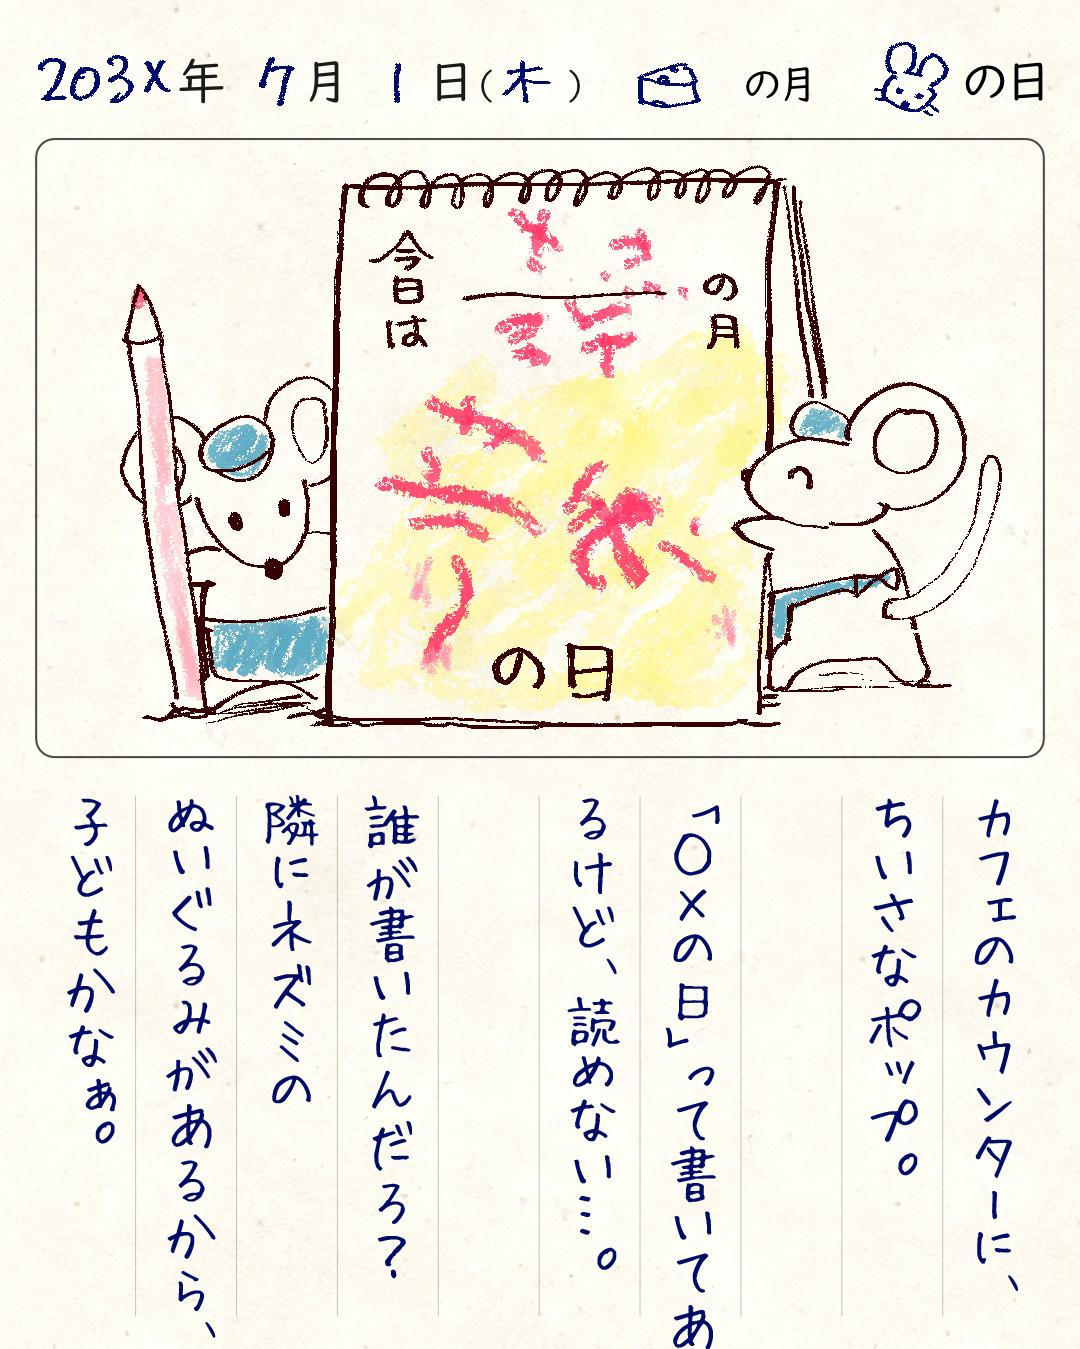 203X年 7月 1日(木) の月 の日
今日は
の月
の日
カフェのカウンターに、
ちいさなポップ。
「〇×の日」って書いてあ
るけど、読めない…。
誰が書いたんだろ？
隣にネズミの
ぬいぐるみがあるから、
子どもかなぁ。